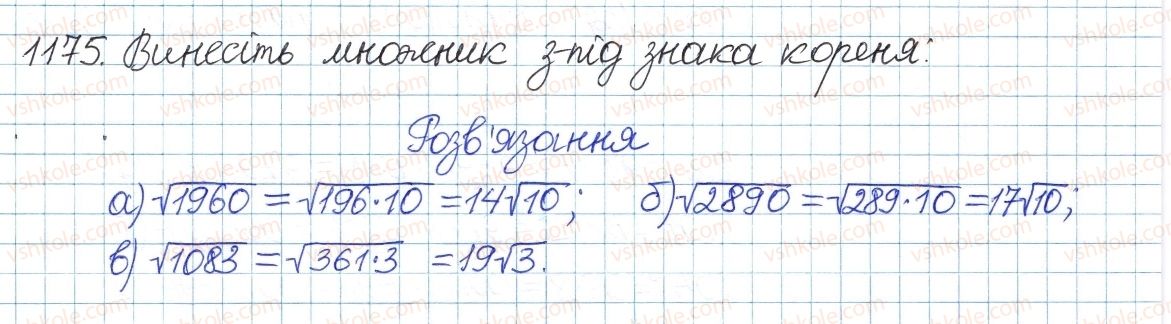 1175. Винесіть множник з-під знака кореня:
Розв'язання
а) √1960 = √196·10 = 14√10; б) √2890 = √289·10 = 17√10;
в) √1083 = √361·3 = 19√3.